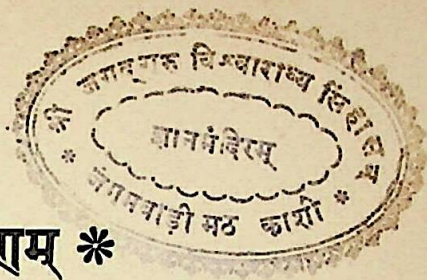 श्री जगद्गुरु विश्वाराध्य सिंहासन
ज्ञानमंदिरम्
* जंगमवाड़ी मठ काशी *
णम् *